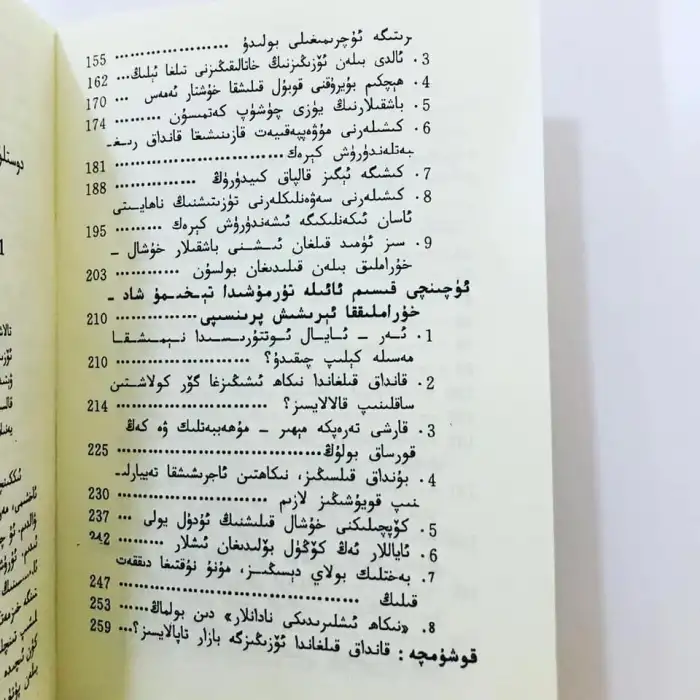 رىتىگە ئۇچرىمىغىلى بولىدۇ ...................... 155
3 . ئالدى بىلەن ئۆزىڭىزنىڭ خاتالىقىڭىزنى تىلغا ئېلىڭ... 162
4 . ھېچكىم بۇيرۇقنى قوبۇل قىلىشقا خۇشتار ئەمەس ... 170
5 . باشقىلارنىڭ يۈزى چۈشۈپ كەتمىسۇن ......... 174
6 . كىشىلەرنى مۇۋەپپەقىيەت قازىنىشىغا قانداق رىغـ
بەتلەندۈرۈش كېرەك........................ 181
7 . كىشىگە ئېگىز قالپاق كىيدۈرۈڭ ............... 188
8 . كىشىلەرنى سەۋەنلىكلەرنى تۈزىتىشنىڭ ناھايىتى
ئاسان ئىكەنلىكىگە ئىشەندۈرۈش كېرەك ......... 195
9 . سىز ئۈمىد قىلغان ئىشىنى باشقىلار خۇشال ـ
خۇراملىق بىلەن قىلىدىغان بولسۇن ............ 203
ئۈچىنچى قىسىم ئائىلە تۇرمۇشىدا تېخىمۇ شاد ـ
خۇراملىققا ئېرىشىش پرىنسىپى............... 210
1 . ئەر ـ ئايال ئوتتۇرىسىدا نېمىشقا
مەسىلە كېلىپ چىقىدۇ؟ ...................... 210
2 . قانداق قىلغاندا نىكاھ ئىشىڭىزغا گۆر كولاشتىن
ساقلىنىپ قالالايسىز؟ ...................... 214
3 . قارشى تەرەپكە مېھىر ـ مۇھەببەتلىك ۋە كەڭ
قورساق بولۇڭ.............................. 225
4 . بۇنداق قىلسىڭىز، نىكاھتىن ئاجرىشىشقا تەييارلىـ
نىپ قويۇشىڭىز لازىم ...................... 230
5 . كۆپچىلىكنى خۇشال قىلىشنىڭ ئۇدۇل يولى ... 237
6 . ئاياللار ئەڭ كۆڭۈل بۆلىدىغان ئىشلار ......... 242
7 . بەختلىك بولاي دېسىڭىز، مۇنۇ نۇقتىغا دىققەت
قىلىڭ .................................... 247
8 . «نىكاھ ئىشلىرىدىكى نادانلار» دىن بولماڭ...... 253
قوشۇمچە : قانداق قىلغاندا ئۆزىڭىزگە بازار تاپالايسىز؟... 259